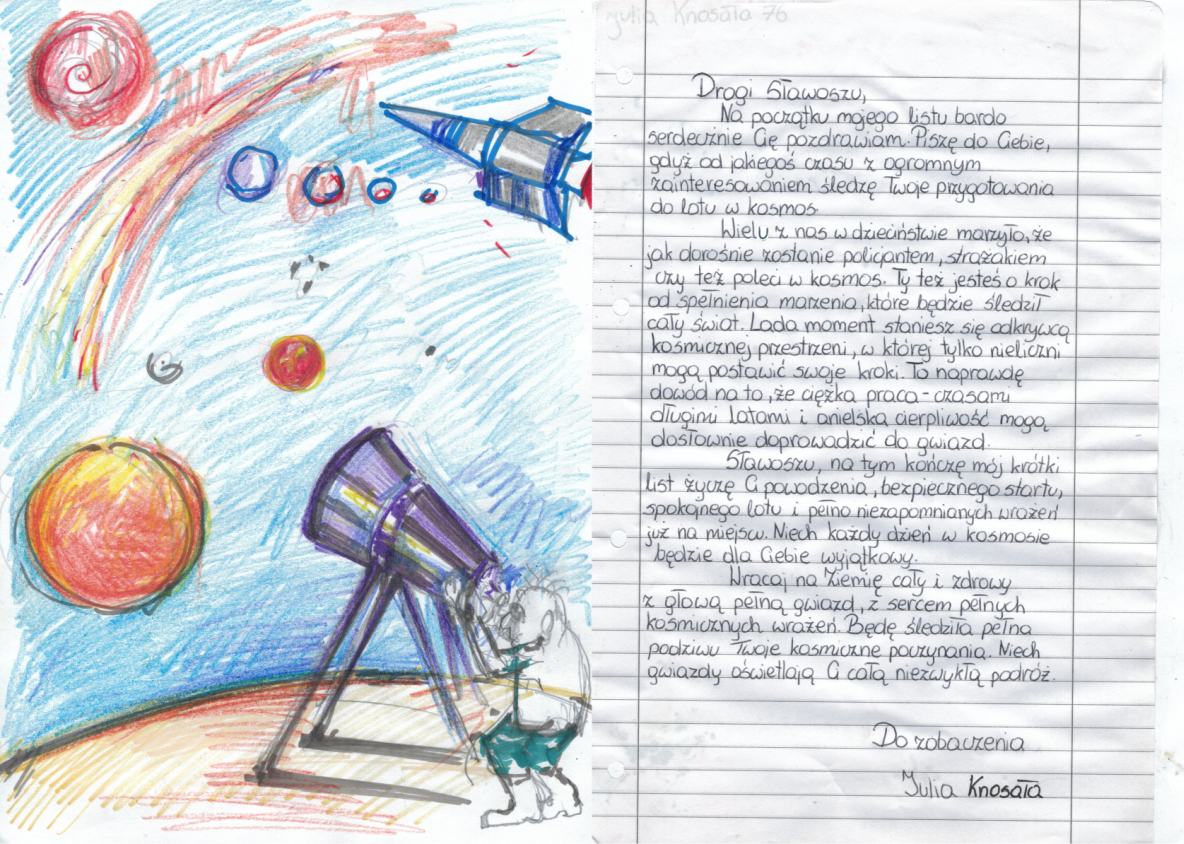 Julia Knosała 7b
Drogi Sławoszu,
Na początku mojego listu bardo
serdecznie Cię pozdrawiam. Piszę do Ciebie,
gdyż od jakiegoś czasu z ogromnym
zainteresowaniem śledzę Twoje przygotowania
do lotu w kosmos.
Wielu z nas w dzieciństwie marzyło, że
jak dorośnie zostanie policjantem, strażakiem
czy też poleci w kosmos. Ty też jesteś o krok
od spełnienia marzenia, które będzie śledził
cały świat. Lada moment staniesz się odkrywcą
kosmicznej przestrzeni, w której tylko nieliczni
mogą postawić swoje kroki. To naprawdę
dowód na to, że ciężka praca - czasami
długimi latami i anielska cierpliwość mogą
dosłownie doprowadzić do gwiazd.
Sławoszu, na tym kończę mój krótki
list życzę Ci powodzenia, bezpiecznego startu,
spokojnego lotu i pełno niezapomnianych wrażeń
już na miejscu. Niech każdy dzień w kosmosie
będzie dla Ciebie wyjątkowy.
Wracaj na Ziemię cały i zdrowy
z głową pełną gwiazd, z sercem pełnych
kosmicznych wrażeń. Będę śledziła pełna
podziwu Twoje kosmiczne poczynania. Niech
gwiazdy oświetlają Ci całą niezwykłą podróż.
Do zobaczenia
Julia Knosała